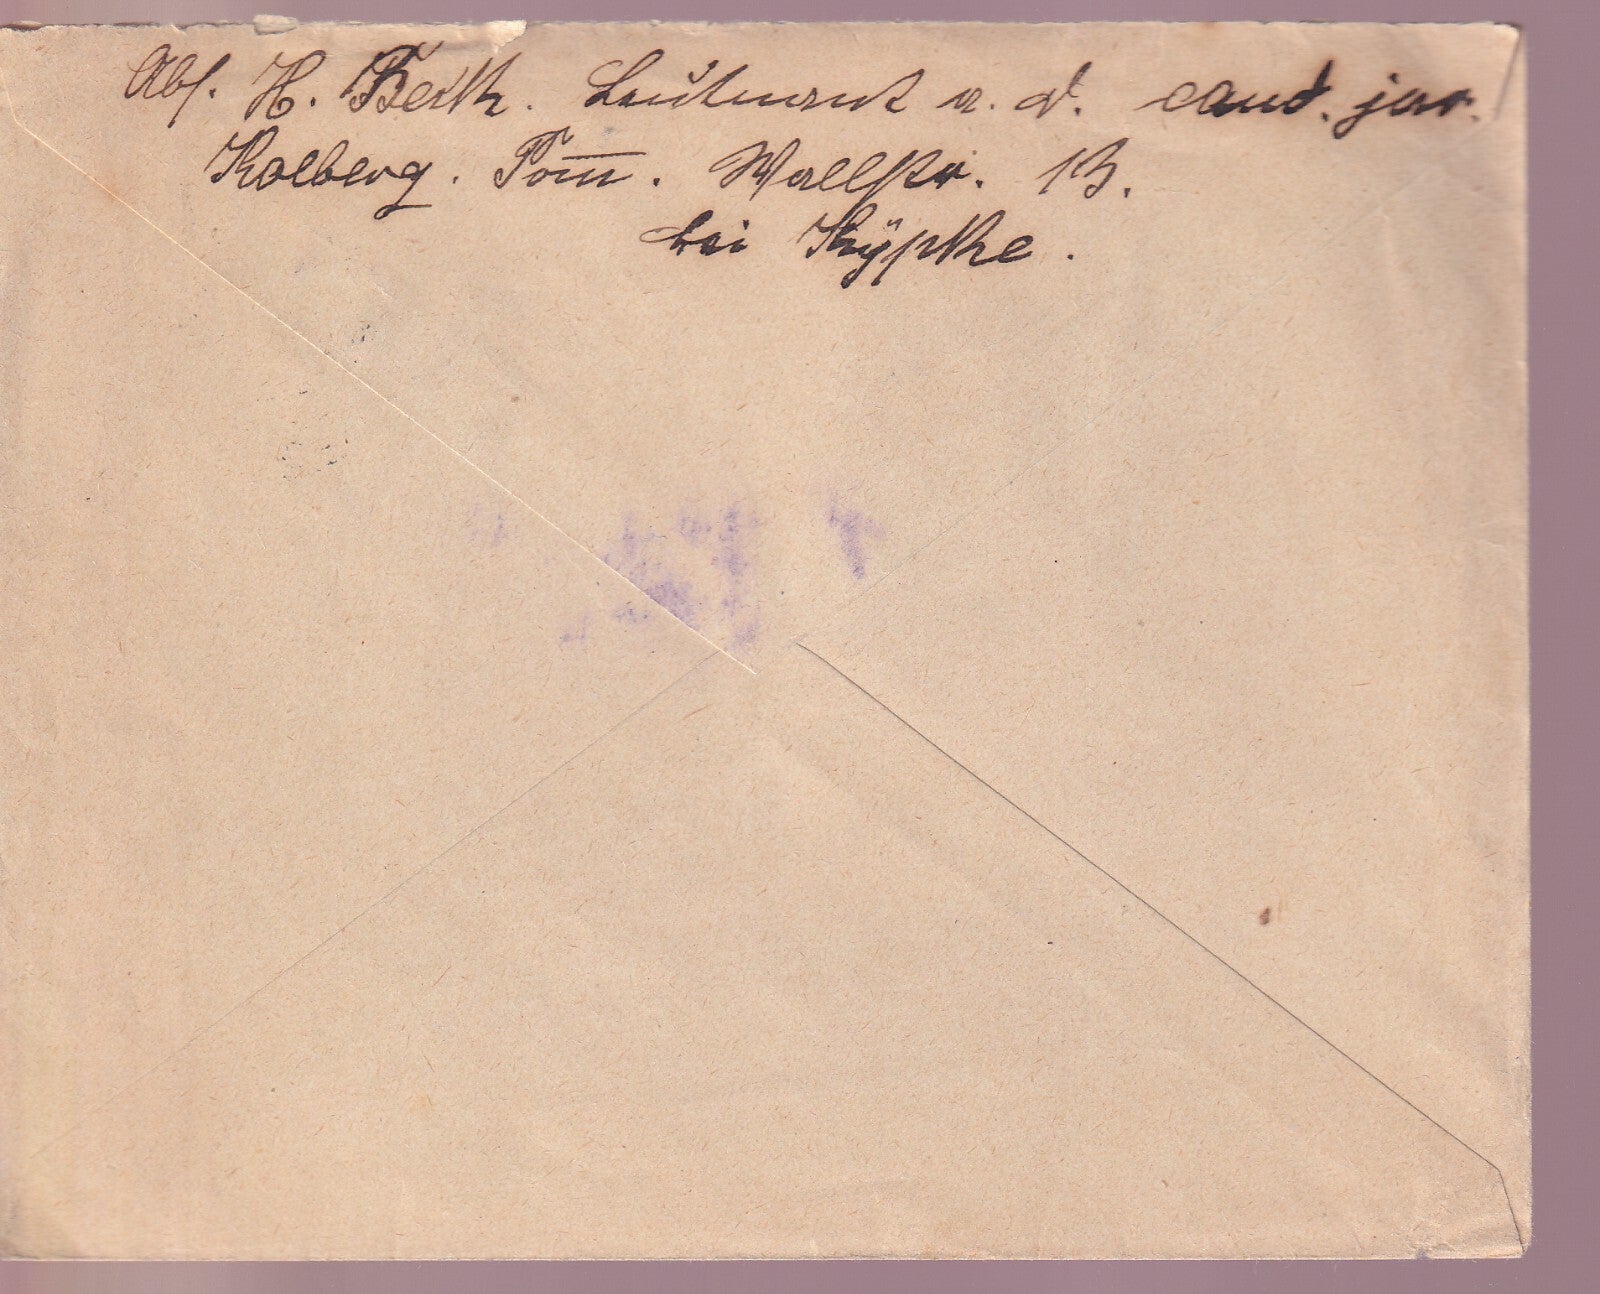 Abs. H. Beth. Leutnant a. d. cand. jur.
Kolberg. Pom̅. Wallstr. 13.
bei Kÿpke.